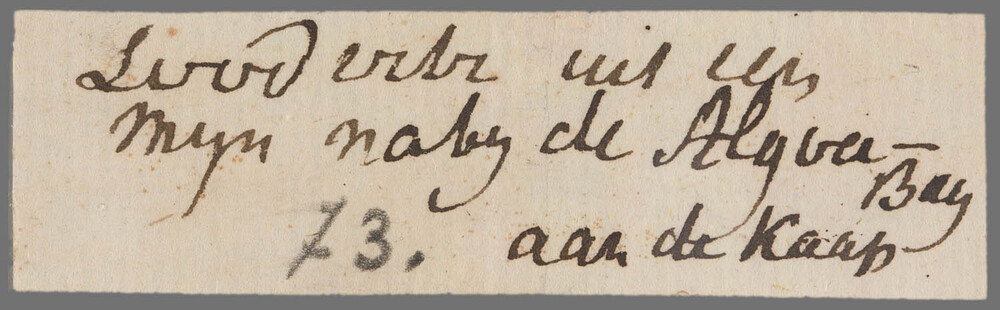 Lood ertz uit een
Myn naby de Algoa-
Bay
73. aan de Kaap